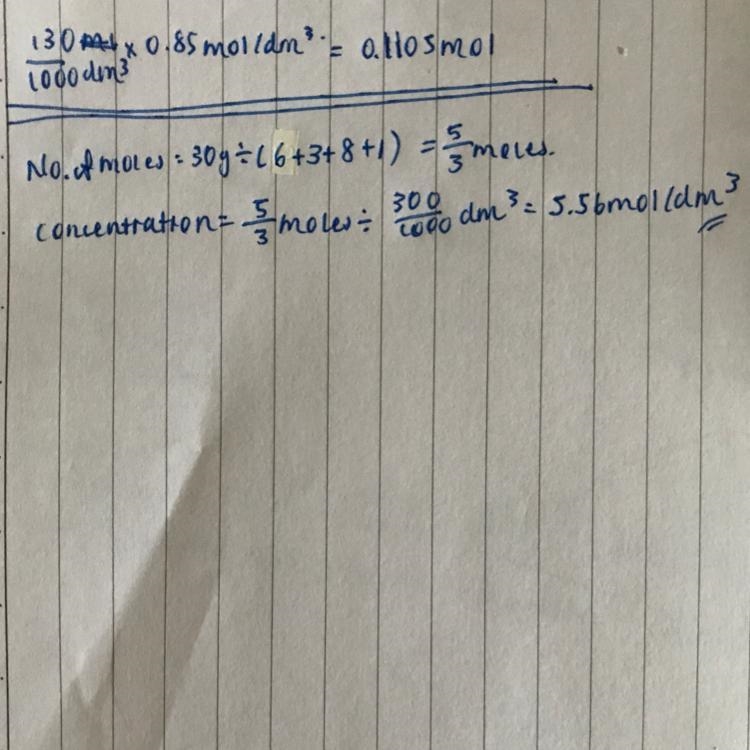 130 x 0.85mol/dm³ = 0.1105mol
1000dm³
No. of moles = 30g÷(6+3+8+1) = 5/3 moles.
concentration = 5/3 moles ÷ 300/1000 dm³ = 5.56mol/dm³